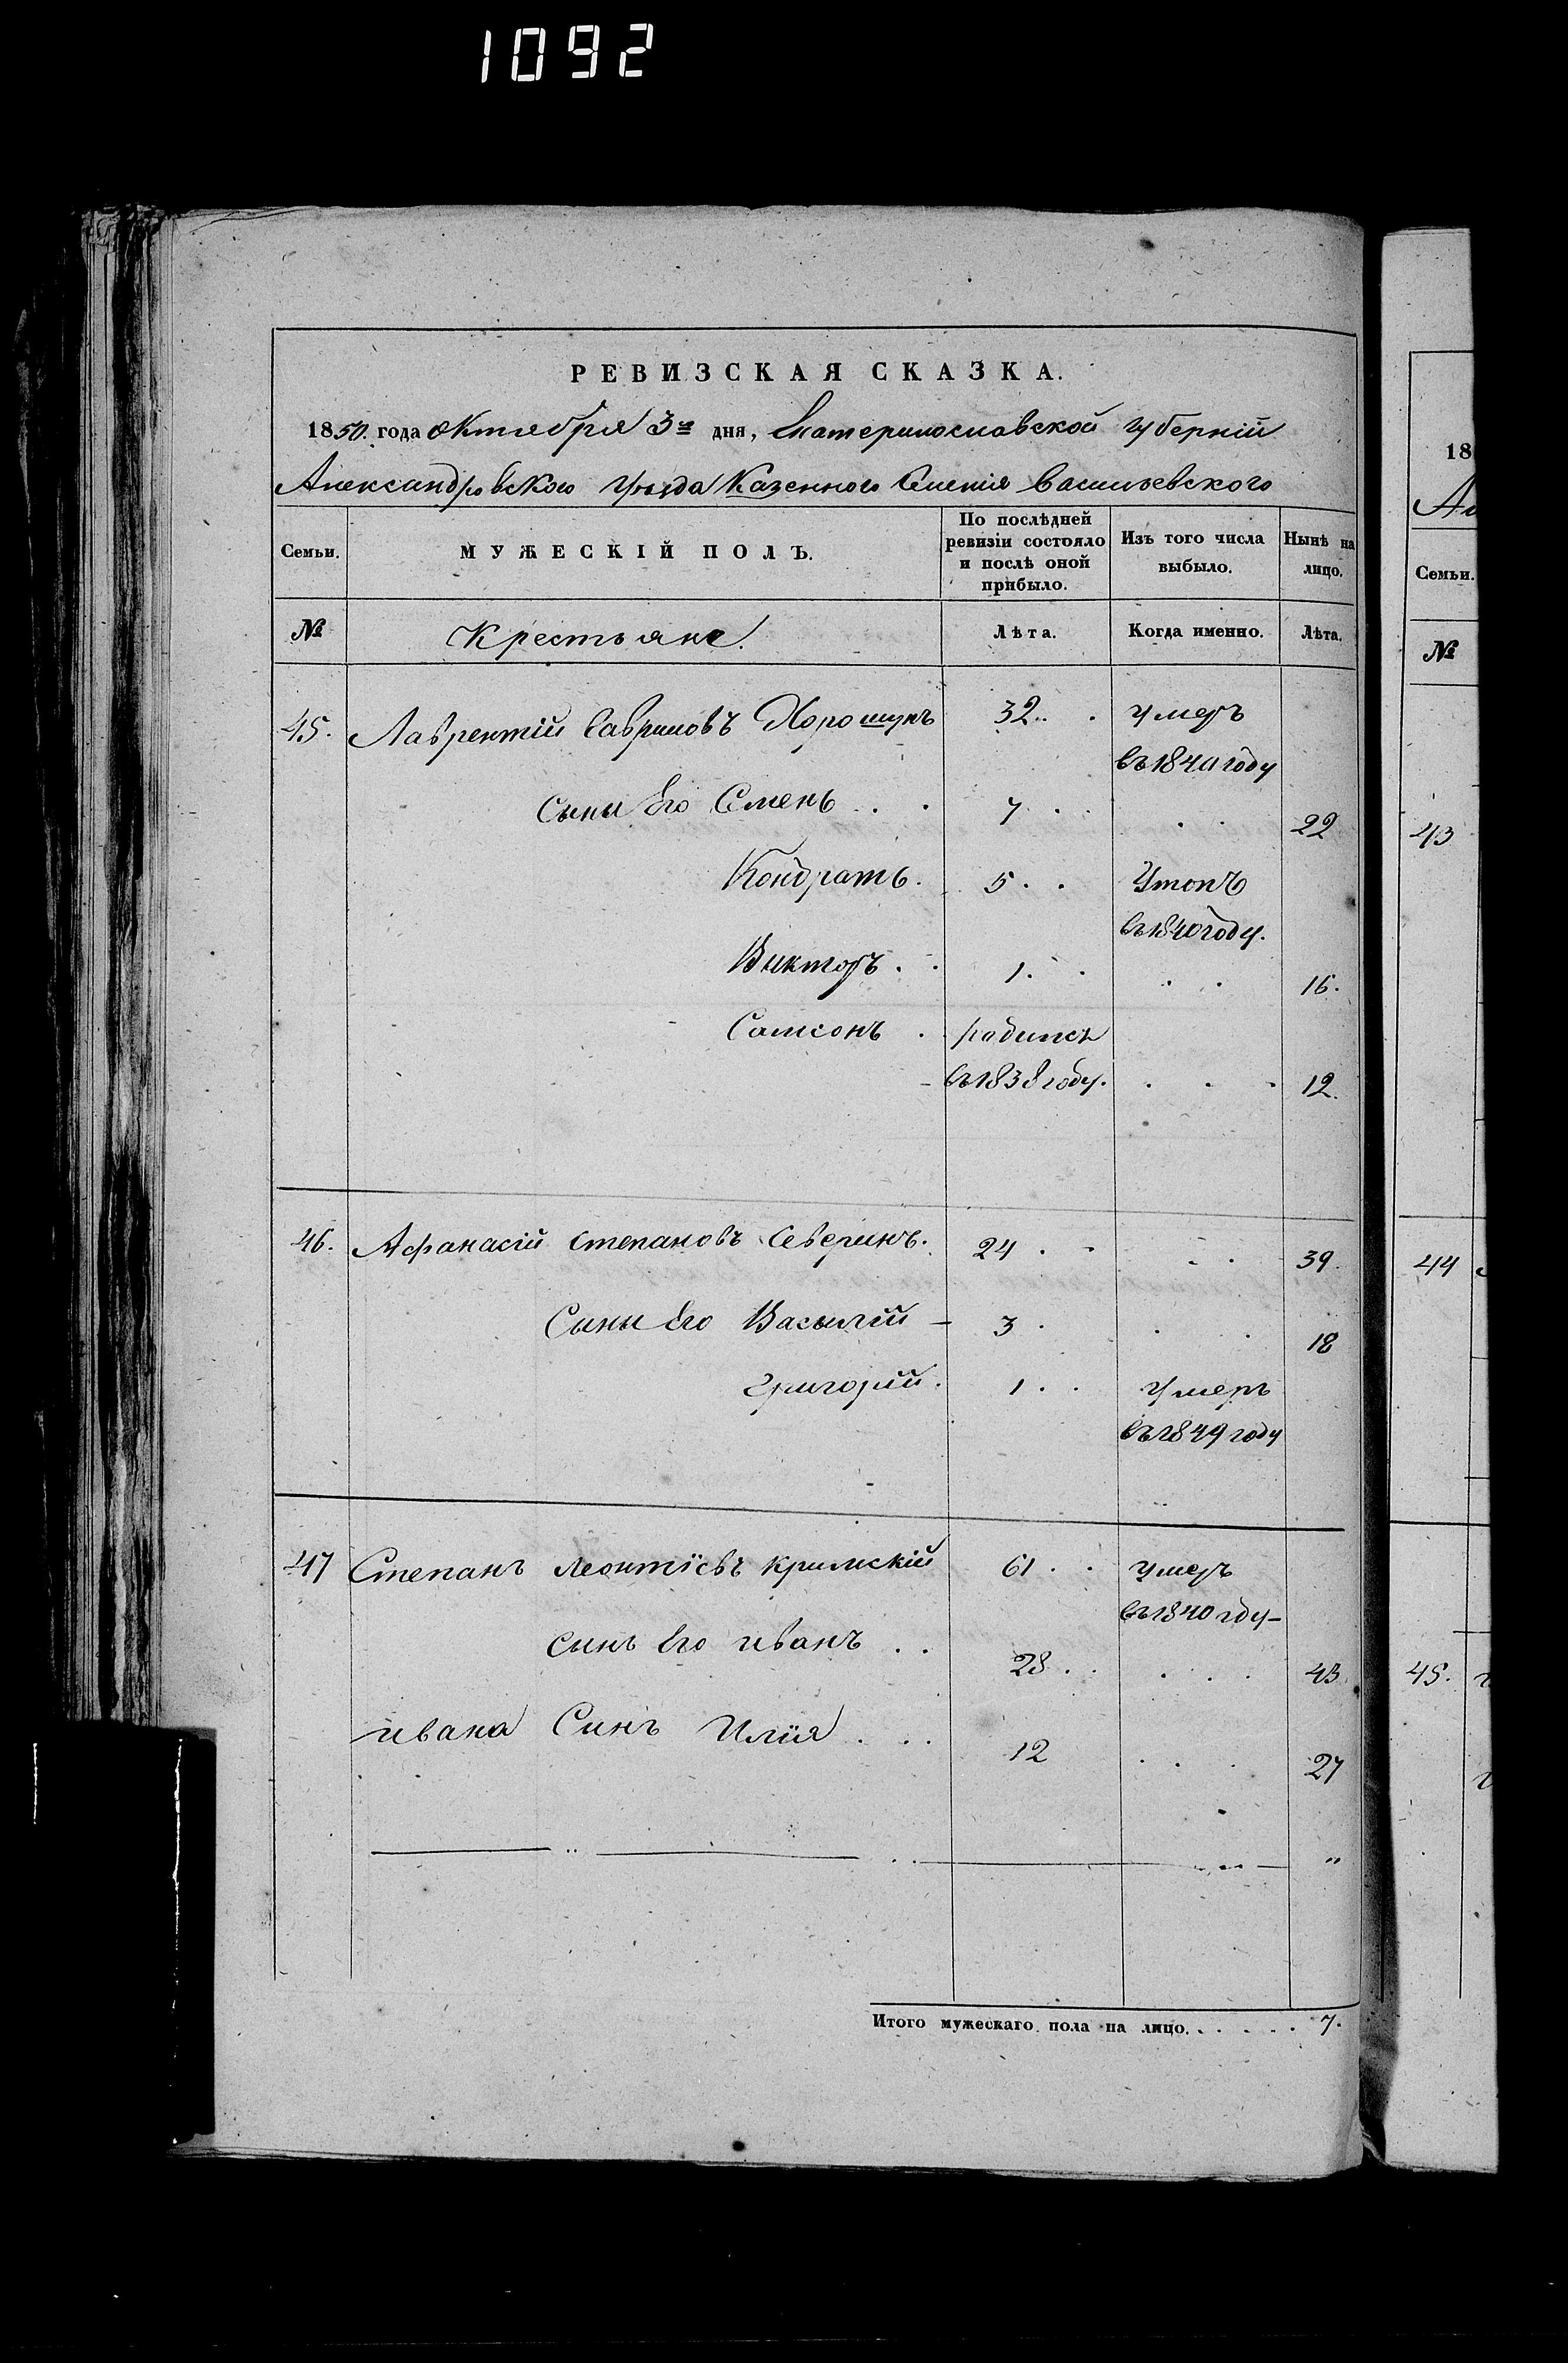 1092
РЕВИЗСКАЯ СКАЗКА.
1850. года октября 3го дня, Екатеринославской губерній
Александровского уѣзда Казенного Селенія Васильевского
Семьи. МУЖЕСКІЙ ПОЛЪ. По послѣдней ревизіи состояло и послѣ оной прибыло. Изъ того числа выбыло. Нынѣ на лицо.
№ Крестьяне. Лѣта. Когда именно. Лѣта.
45. Лаврентій Гавриловъ Хорошунъ 32 умеръ
въ 1840 году
Сыны Его Семенъ 7 22
Кондратъ. 5 Утопъ
въ 1840 году.
Викторъ 1. 16.
Самсонъ родился
въ 1838 году. 12.
46. Афанасій Степановъ Северинъ. 24 39.
Сыны Его Васылій 3 18
Григорій. 1 Умеръ
въ 1849 году
47 Степанъ Леонтіевъ Кримскій 61 Умеръ
въ 1840 году
сынъ Его иванъ 28 43
ивана Синъ Илія 12 27
Итого мужескаго пола на лицо. 7.
18
Ал
Семьи.
№
43
44
45.